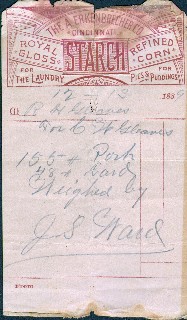 THE A. ERKENBRECHER CO.
CINCINNATI
ROYAL GLOSS
STARCH
REFINED CORN
FOR THE LAUNDRY
FOR PIES & PUDDINGS
12 - 13 188
155 # Pork
48 # Lard
Weighed by
J S Ward